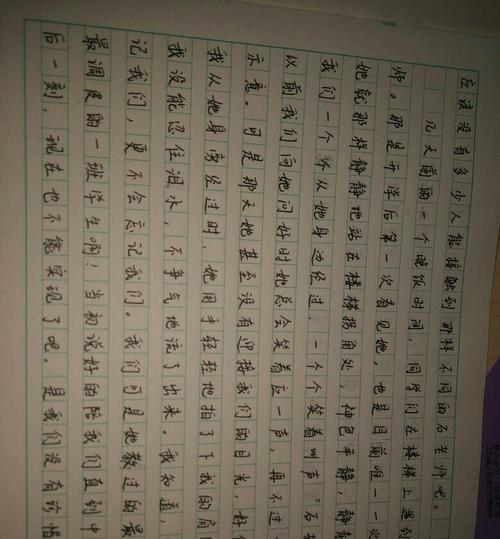 应该没有多少人能接触到那样不同的石老师吧。
几天前的一个晚饭时间，同学们在楼梯上遇到
师。那是开学后第一次看见她，也是目前唯一一次
她就那样静静地站在楼梯拐角处，神色平静，静
我们一个个从她身边经过，一个个笑着叫声“石
以前我们向她问好时她总会笑着应一声，再不过
示意。可是那天她甚至没有迎接我们的目光，好
我从她身旁经过时，她用手轻轻地拍了下我的肩
我没能忍住泪水，不争气地流了出来。我知道，
记我们，更不会忘记我们。我们可是她教过的最
最调皮的一班学生啊！当初说好的陪我们直到中
后一刻，现在也不能实现了吧。是我们没有珍惜